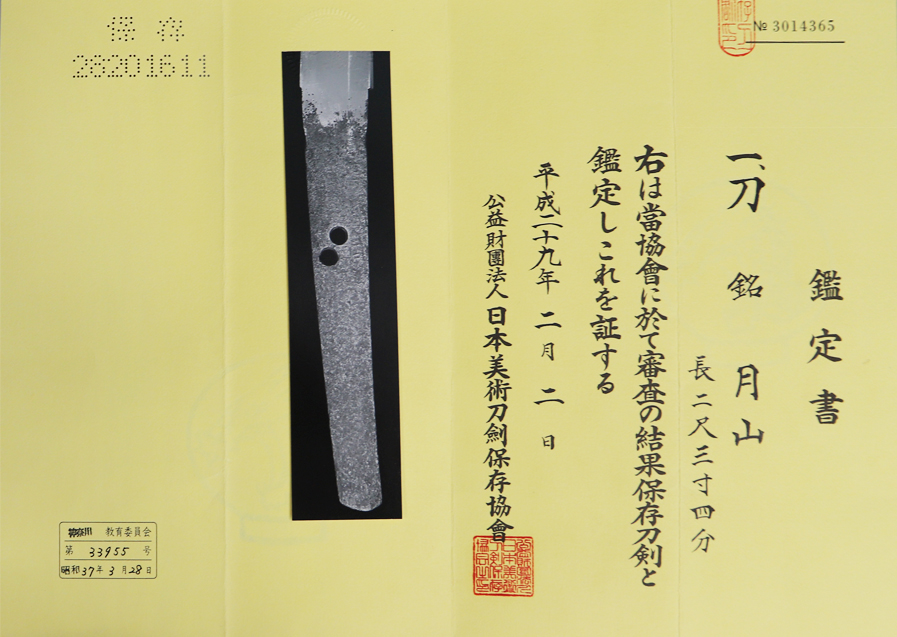 № 3014365
鑑定書
一、刀 銘 月山
長二尺三寸四分
右は當協會に於て審査の結果保存刀剣と
鑑定しこれを証する
平成二十九年 二月 二日
公益財團法人 日本美術刀劍保存協會
保存
28201611
神奈川 教育委員会
第 33955 号
昭和37年3月28日